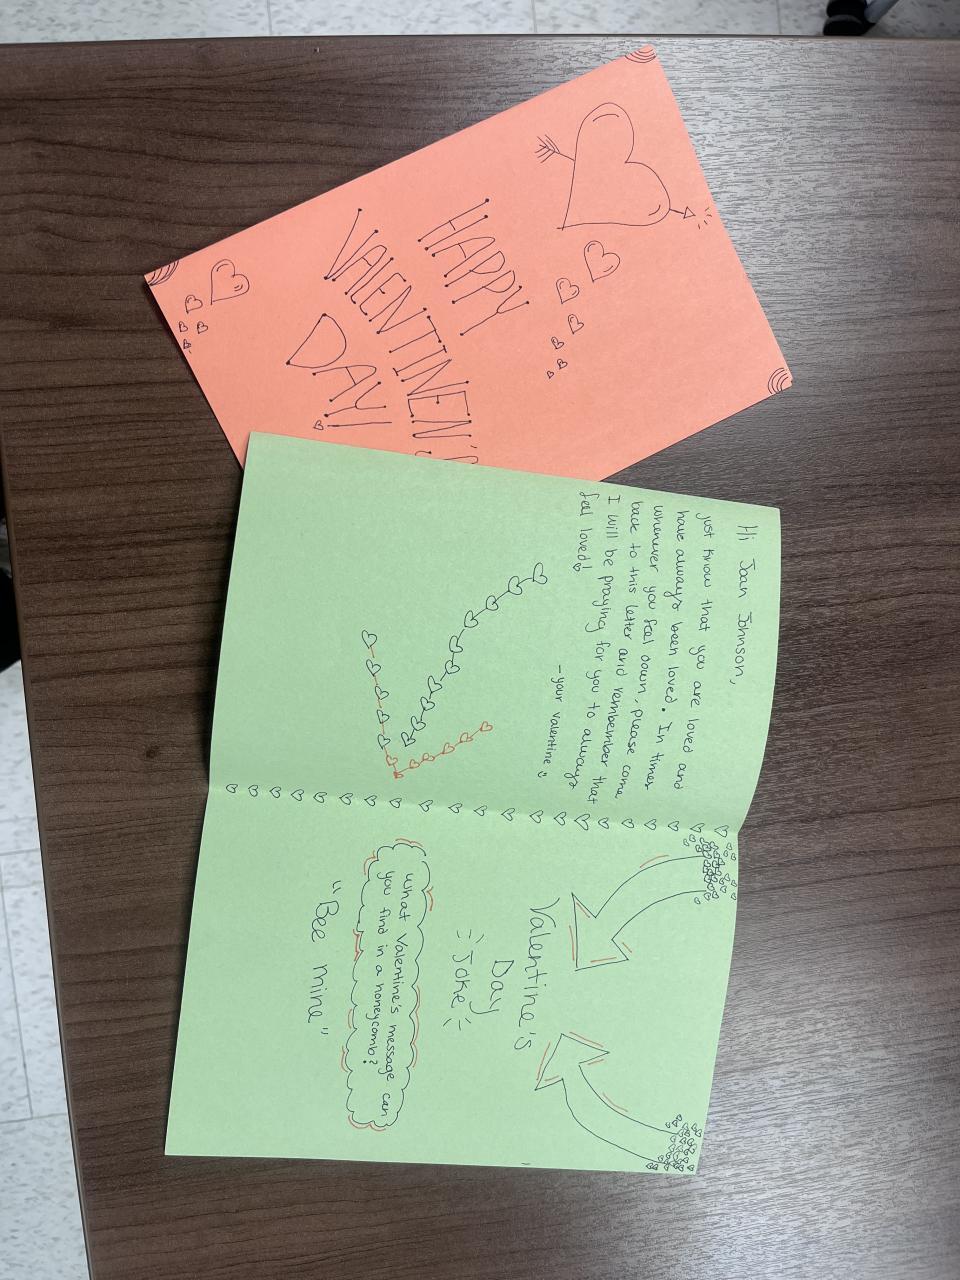 HAPPY
VALENTINE'S
DAY!
Hi Joan Johnson,
Just know that you are loved and
have always been loved. In times
whenever you feel down, please come
back to this letter and remember that
I will be praying for you to always
feel loved!
- your valentine
Valentine's
Day
Joke
What Valentine's message can
you find in a honeycomb?
"Bee mine"